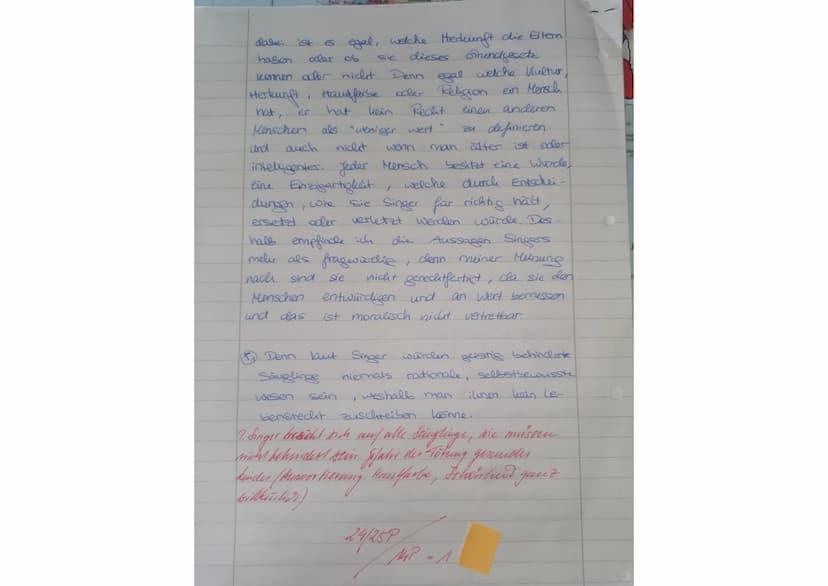 dabei ist es egal, welche Herkunft die Eltern
haben oder ob sie dieses Grundgesetz
kennen oder nicht. Denn egal welche Kultur,
Herkunft, Hautfarbe oder Religion ein Mensch
hat, er hat kein Recht einen anderen
Menschen als "weniger wert" zu definieren.
Und auch nicht wenn man älter ist oder
intelligenter. Jeder Mensch besitzt eine Würde,
eine Einzigartigkeit, welche durch Entschei-
dungen, wie sie Singer für richtig hält,
ersetzt oder verletzt werden würde. Des-
halb empfinde ich die Aussagen Singers
mehr als fragwürdig, denn meiner Meinung
nach sind sie nicht gerechtfertigt, da sie den
Menschen entwürdigen und an Wert bemessen
und das ist moralisch nicht vertretbar.
Denn laut Singer würden geistig behinderte
Säuglinge niemals rationale, selbstbewusste
wesen sein, weshalb man ihnen kein Le-
bensrecht zuschreiben könne.
? Singer bezieht sich auf alle Säuglinge, sie müssen
nicht behindert sein. Gefahr der Tötung gesunder
Kinder (Aussortierung: Hautfarbe, ganz
willkürlich)
24/25P
14P = 1